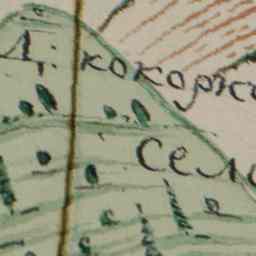 Д: кокорж
Сел